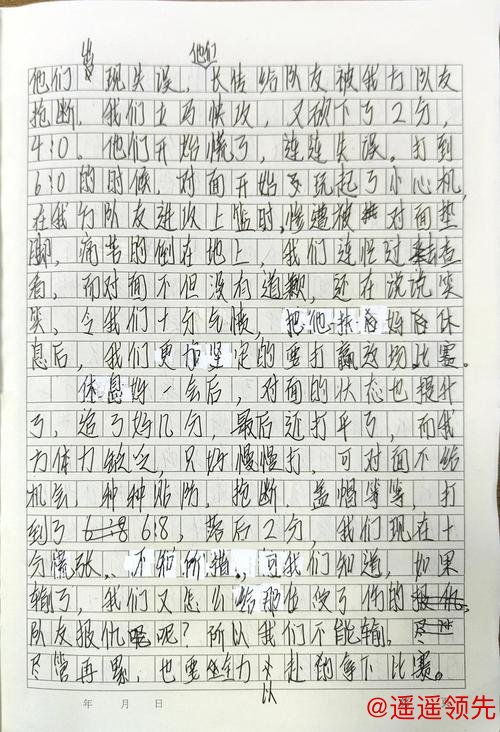 出 他们
他们现失误，长传给队友被我方队友
抢断，我们立马快攻，又砍下了2分，
4:0。他们开始慌了，连连失误。打到
6:0的时候，对面开始耍起了小心机，
在我方队友进攻上篮时，惨遭被对面垫
脚，痛苦的倒在地上，我们连忙过去查
看，而对面不但没有道歉，还在说说笑
笑，令我们十分气愤，把他扶好后休
息后，我们更加坚定的要打赢这场比赛。
休息好一会后，对面的状态也提升
了，追了好几分，最后还打平了，而我
方体力缺乏，只好慢慢打，可对面不给
机会，种种贴防，抢断，盖帽等等，打
到了 6:8，落后2分，我们现在十
分慌张，不知所措，可我们知道，如果
输了，我们又怎么给那位受了伤的
队友报仇呢？所以我们不能输，
尽管再累，也要全力以赴的拿下比赛。
以
年 月 日
@遥遥领先